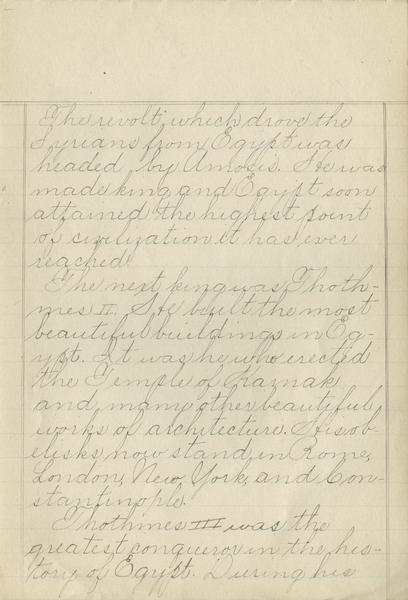 The revolt, which drove the
Syrians from Egypt was
headed by Amosis. He was
made king and Egypt soon
attained the highest point
of civilization it has ever
reached.
The next king was Thoth-
mes II. He built the most
beautiful buildings in Eg-
ypt. It was he who erected
the Temple of Karnak
and many other beautiful
works of architecture. His ob-
elisks now stand in Rome,
London, New York, and Con-
stantinople.
Thothmes III was the
greatest conqueror in the his-
tory of Egypt. During his